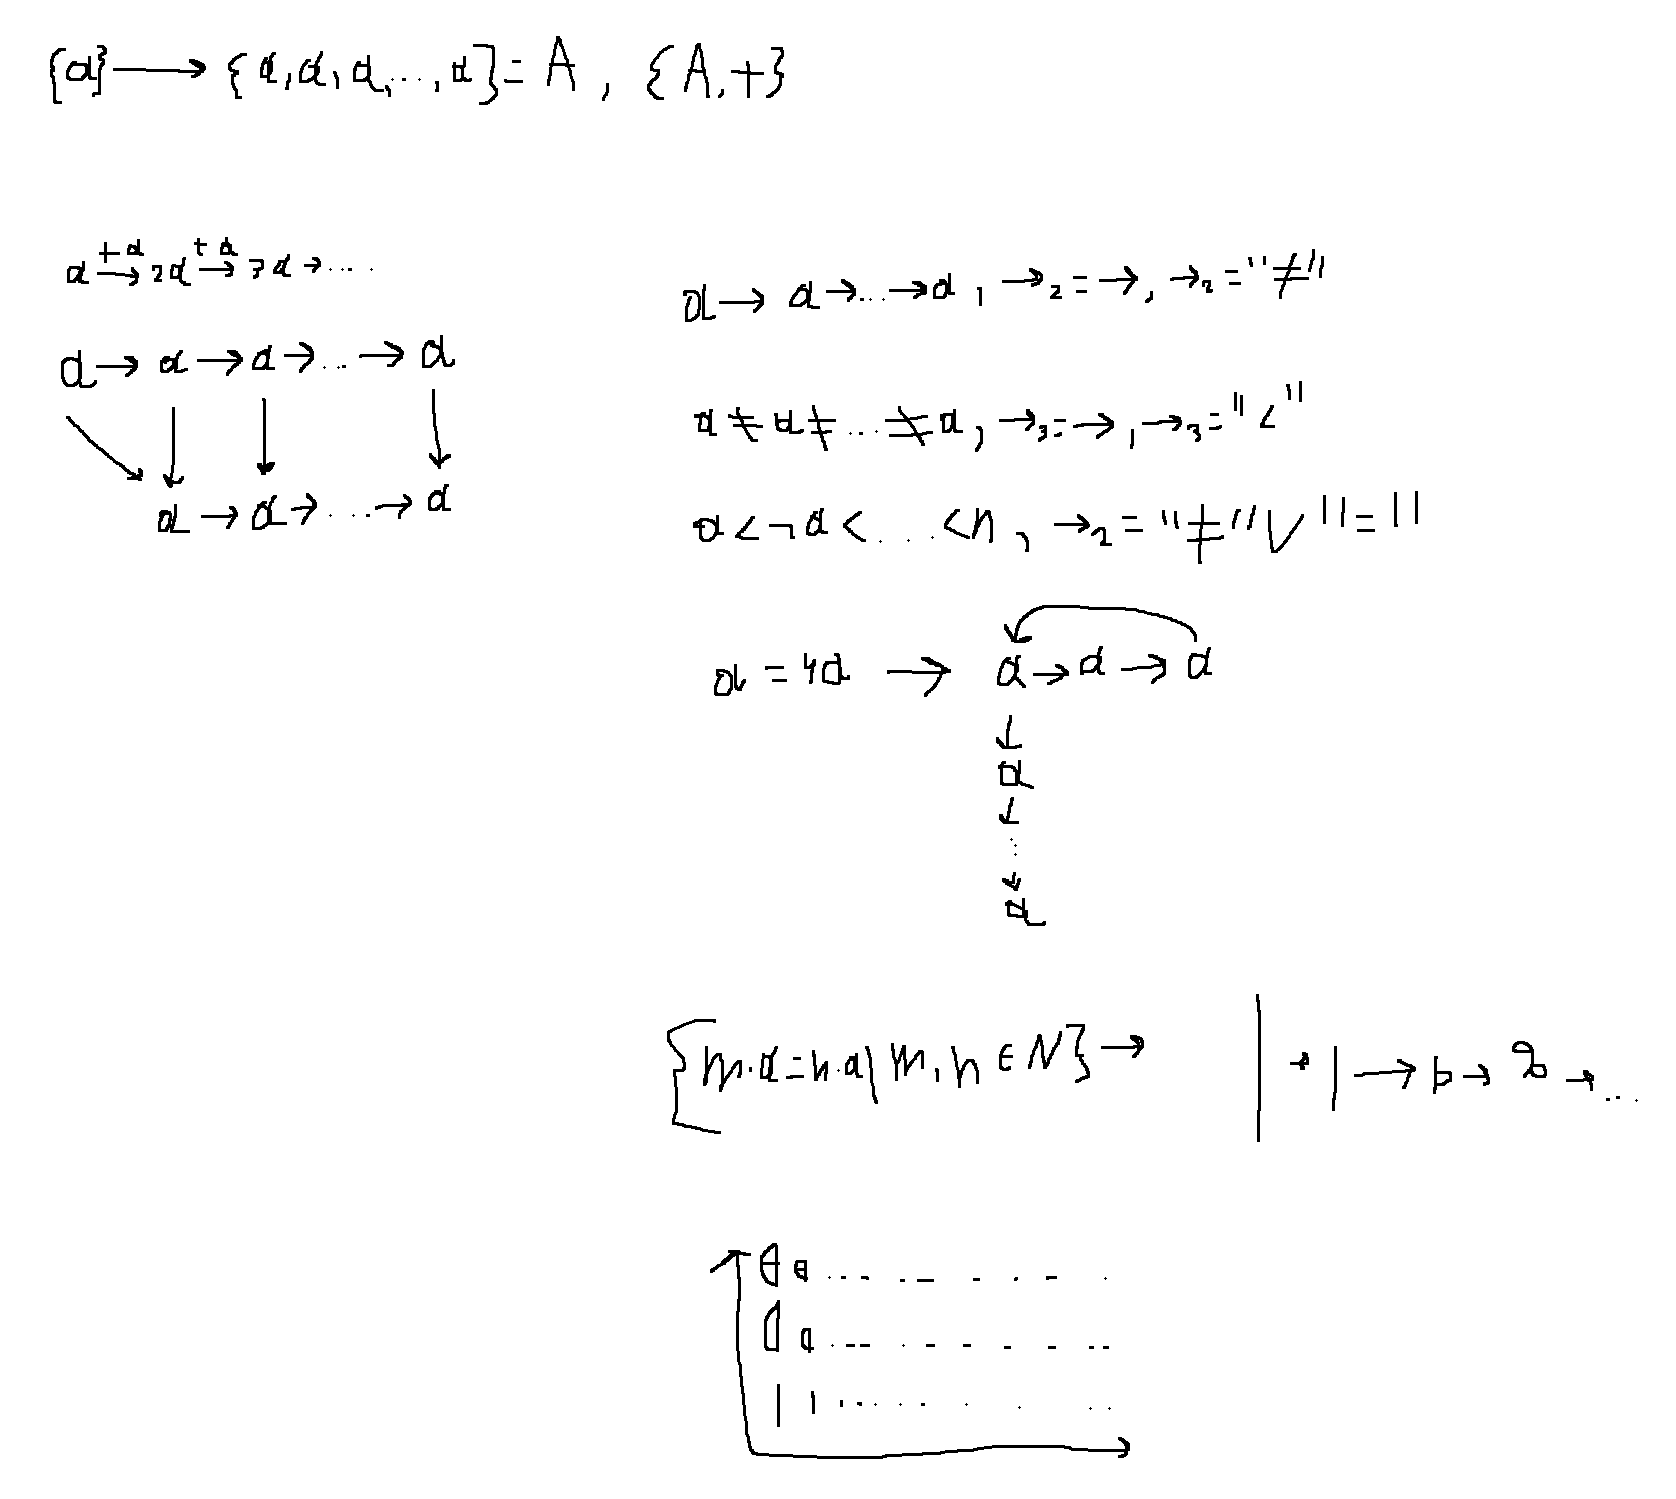 {a} → {a, a, a, ..., a} = A , {A, +}
a +a→ 2a +a→ 3a → ....
a → a → a → ... → a
a → a → ... → a
a → a → ... → a , →₂ = →, →₂ = "≠"
a ≠ a ≠ ... ≠ a , →₃ = → , →₃ = "<"
a < ¬a < ... < n , →₂ = "≠" ∨ "="
a = 4a → a → a → a
↓
a
↓
⋮
↓
a
{m·a = n·a | m, n ∈ N} → | → | → b → → ...